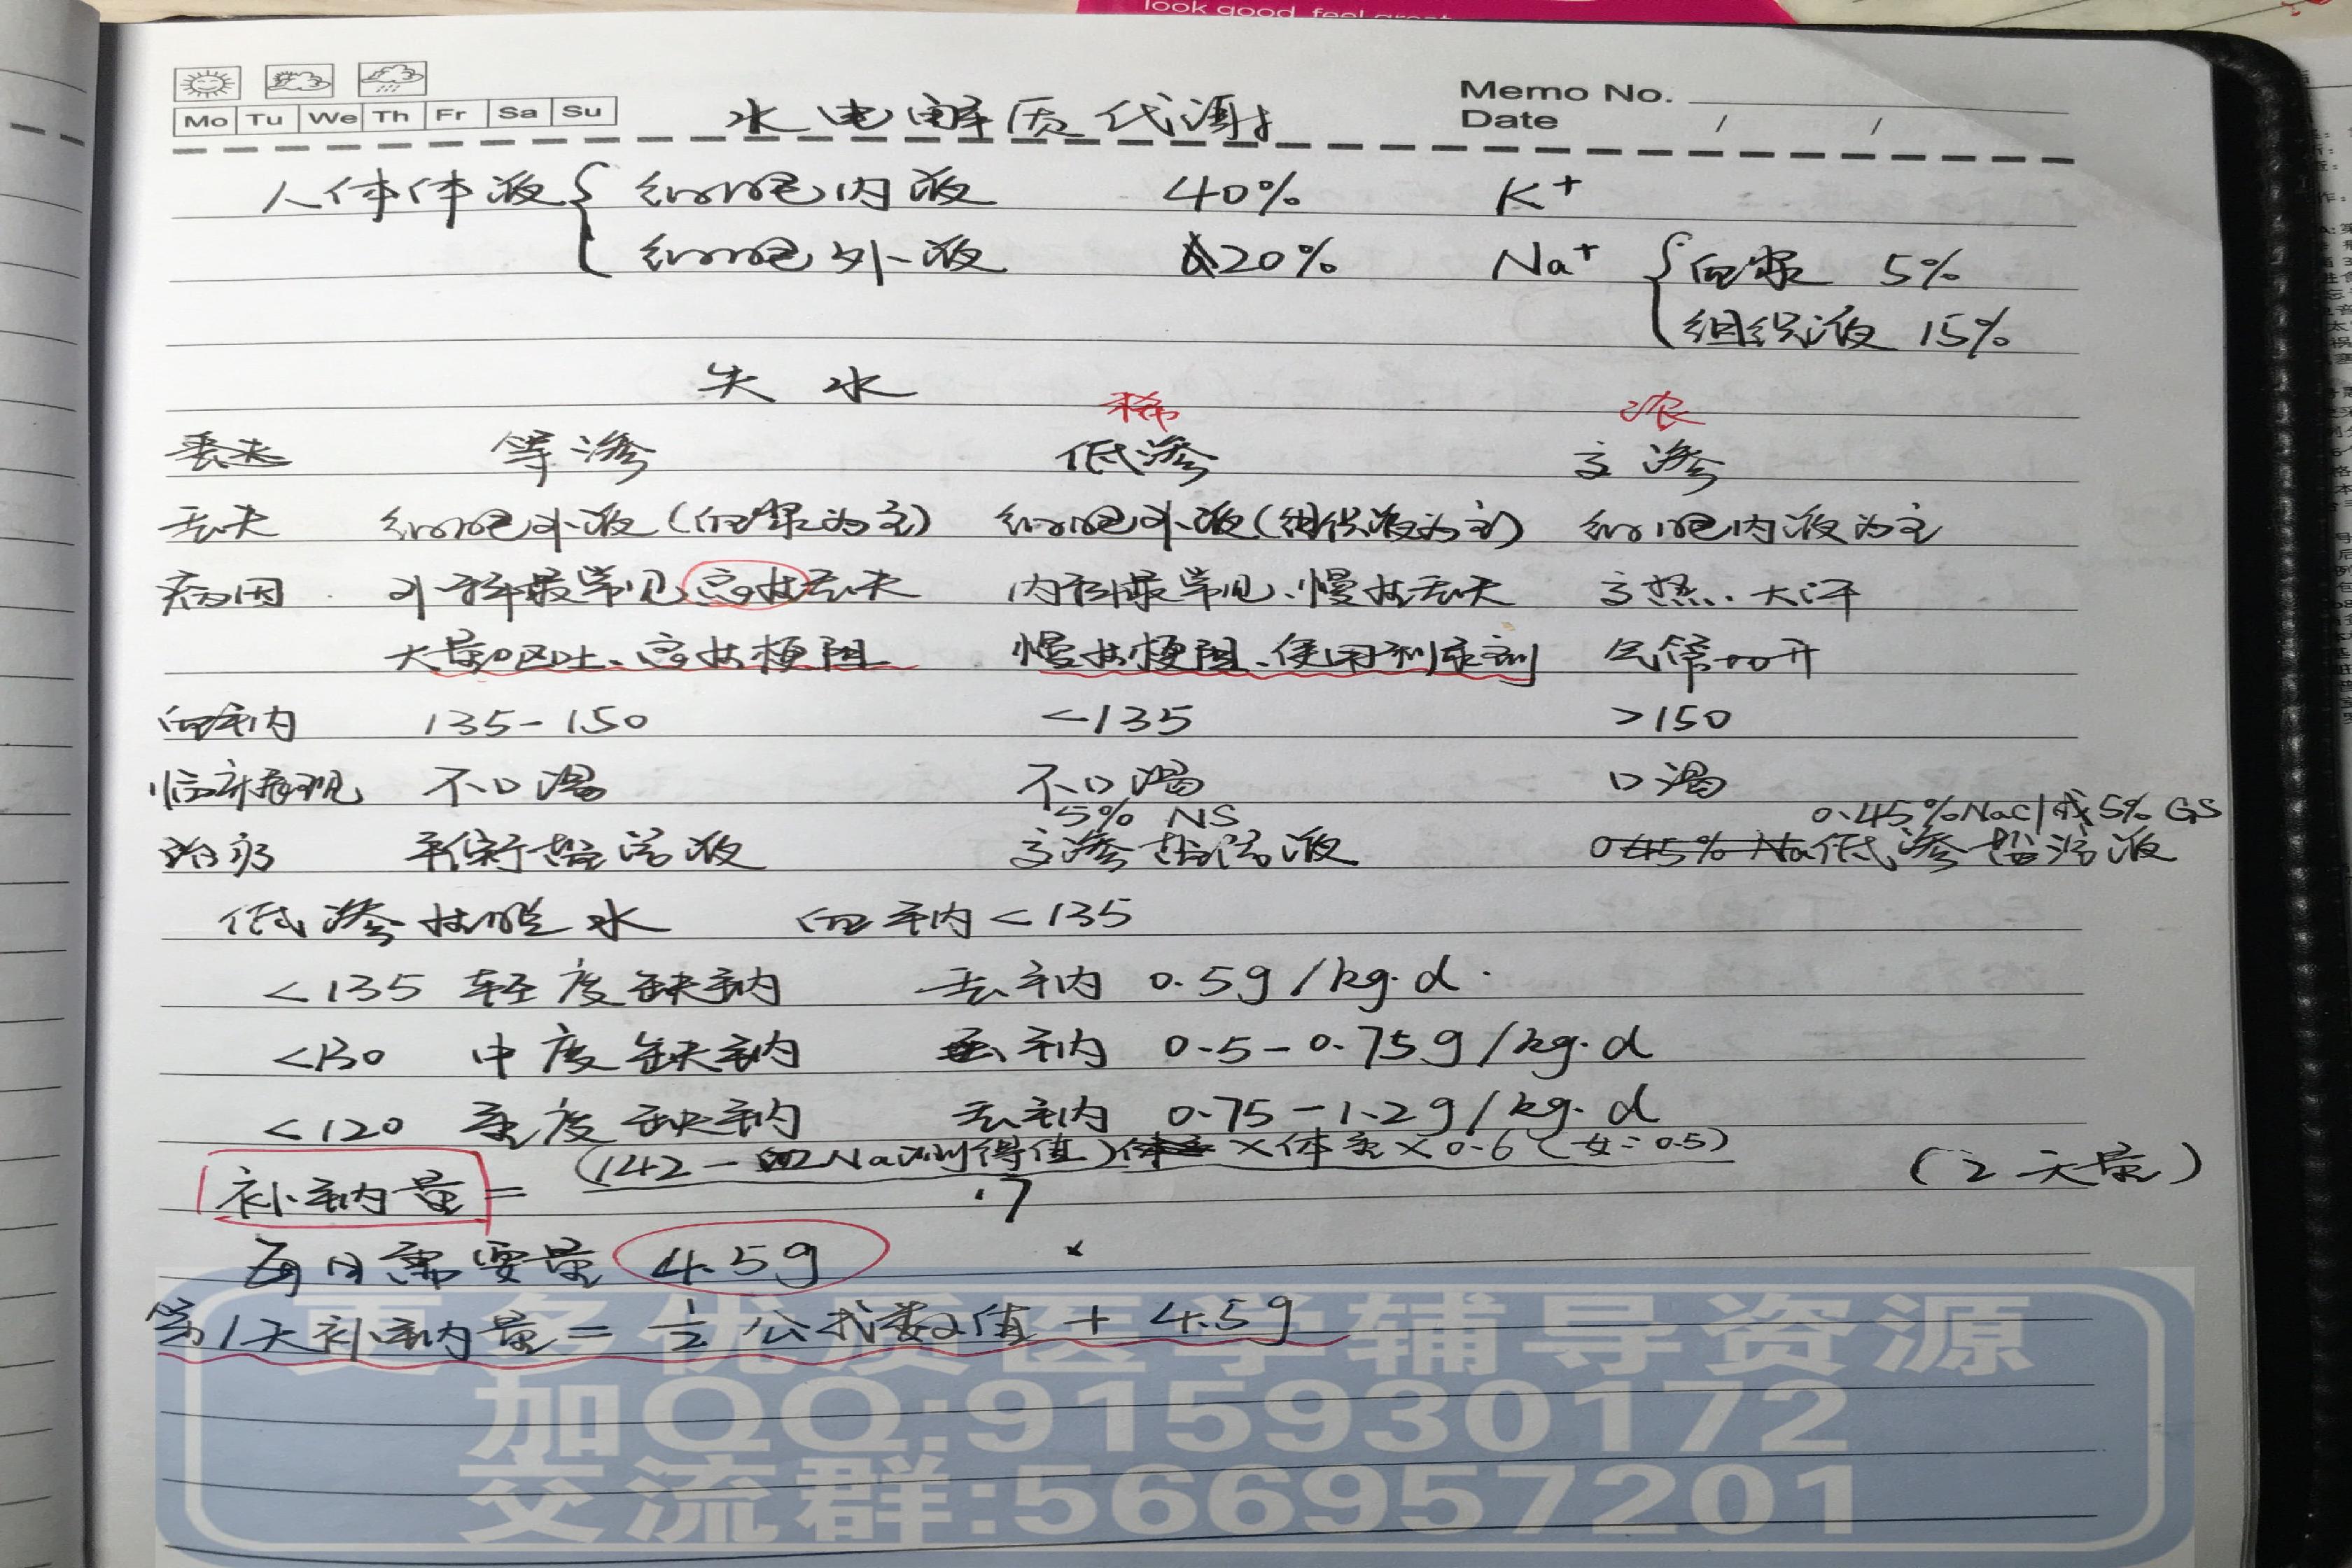 look good, feel great
Mo Tu We Th Fr Sa Su
水电解质代谢
Memo No.
Date / /
人体体液 { 细胞内液 40% K+
细胞外液 20% Na+ { 血浆 5%
组织液 15%
失水
稀 浓
等渗 低渗 高渗
丢失 细胞外液(血浆为主) 细胞外液(组织液为主) 细胞内液为主
病因 外科最常见 急性丢失 内科最常见、慢性丢失 高热、大汗
大量呕吐、急性梗阻 慢性梗阻、使用利尿剂 气管切开
血钠 135-150 <135 >150
临床表现 不口渴 不口渴 口渴
5% NS 0.45%NaCl或5% GS
治疗 平衡盐溶液 高渗盐溶液 0.45% Na低渗盐溶液
低渗性脱水 血钠<135
<135 轻度缺钠 丢钠 0.5g/kg.d
<130 中度缺钠 丢钠 0.5-0.75g/kg.d
<120 重度缺钠 丢钠 0.75-1.2g/kg.d
(142-血Na测得值)×体重×0.6(女:0.5)
补钠量= 17 (2天量)
每日需要量 4.5g
第1天补钠量=1/2公式数值+4.5g
更多优质医学辅导资源
加QQ:915930172
交流群:566957201